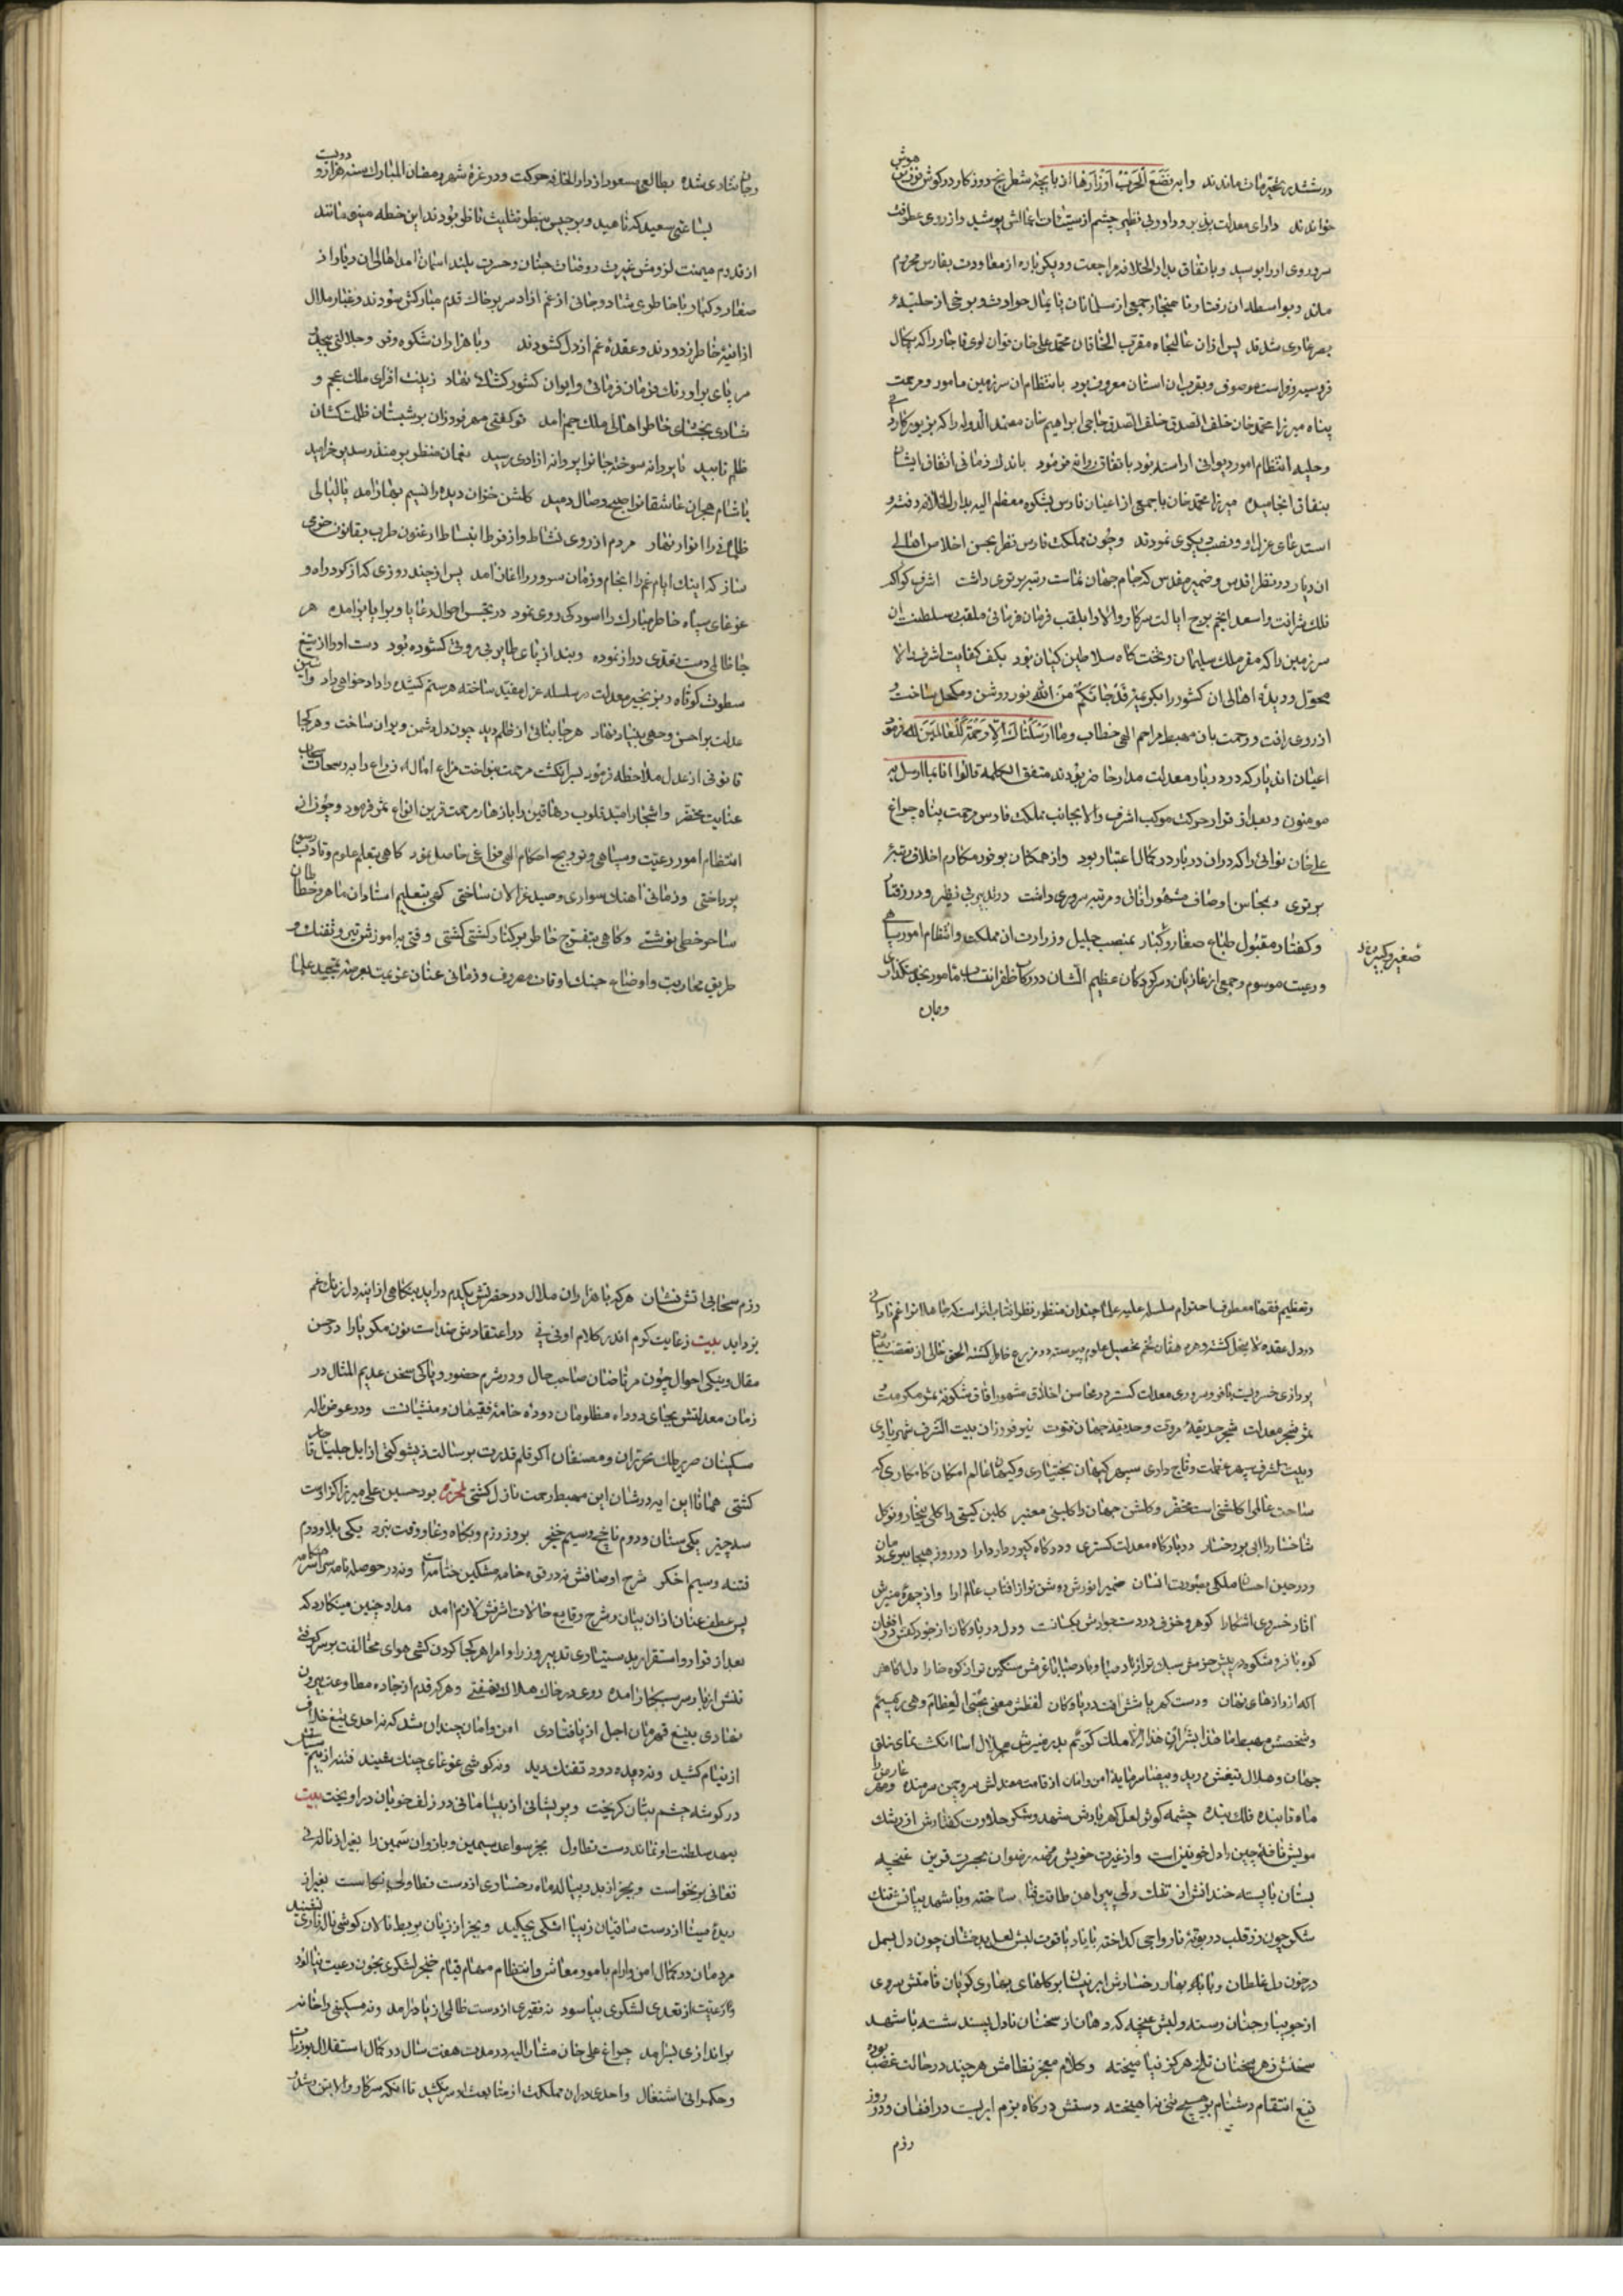 در ششدر تحیر مات ماندند وایه تضع الحرب اوزارها از بازیچه شطرنج روزکار در کوش هوش
خواندند دارای معدلت پذیر و داور بی نظیر چشم از سیئات اعمالش پوشید و از روی عطوفت
سر و روی او را بوسید و باتفاق بدار الخلافه مراجعت و دیکر باره از معاودت بفارس محروم
ماند و بواسطه ان رفتار ناهنجار جمعی از سلمانان پایمال حوادث و برخی از حلیه
بصر عاری شدند پس از ان عالیجاه مقرب الخاقان محمد علی خان قوان لوی قاجار را که بکمال
و فراست موصوف و بقرب ان استان معروف بود بانتظام ان سرزمین مامور و مرحمت
پناه میرزا محمد خان خلف الصدق حاجی ابراهیم خان معتمد الدوله را که بزیور کاردانی
و حلیه انتظام امور دیوانی اراسته بود باتفاق روانه فرمود باندک زمانی اتفاق ایشان
بنفاق انجامیده میرزا محمد خان با جمعی از اعیان فارس بشکوه معظم الیه بدار الخلافه رفته و
استدعای عزل او و نصب دیکری نمودند و چون مملکت فارس نظر بحسن اخلاص اهالی
ان دیار در نظر اقدس و ضمیر مقدس که جام جهان نماست رتبه برتری داشت اشرف کواکب
فلک شرافت و اسعد انجم برج ایالت سرکار والا را بلقب فرمان فرمائی ملقب بسلطنت ان
سرزمین را که مقر ملک سلیمان و تختکاه سلاطین کیان بود بکف کفایت اشرف والا
محول و دیده اهالی ان کشور را بکریمه قد جائکم من الله نور روشن و مکحل ساخت
از روی رافت و رحمت بان مهبط مراحم الهی خطاب وما ارسلناک الا رحمة للعالمین فرمود
اعیان اندیار که در دربار معدلت مدار حاضر بودند متفق الکلمه قالوا انا بما ارسل به
مومنون و بعد از قرار حرکت موکب اشرف والا بجانب مملکت فارس مرحمت پناه چراغ
علی خان نوائی را که در ان دربار در کمال اعتبار بود و از همکنان بوفور مکارم اخلاق رتبه
برتری و بمحاسن اوصاف مشهور افاق و مرتبه سروری داشت در تدبیر بی نظیر و در رفتار
و کفتار مقبول طباع صغار و کبار بمنصب جلیل وزارت ان مملکت و انتظام امور سپاهی
صغیر و کبیر
و رعیت موسوم و جمعی از غازیان و سرکردکان عظیم الشان در رکاب ظفر انتساب مامور بخدمتکذاری
و جان
و جان نثاری شده بطالعی مسعود از دار الخلافه حرکت و در غره شهر رمضان المبارک سنه هزار و دویست
بساعتی سعید که ناهید و برجیس بنظر تثلیث ناظر بودند این خطه مینو مانند
از قدوم میمنت لزومش غیرت روضات جنان و حسرت بلند اسمان امد اهالی ان دیار از
صغار و کبار با خاطری شاد و جانی از غم ازاد سر بر خاک قدم مبارکش سودند و غبار ملال
از اینه خاطر زدودند و عقده غم از دل کشودند و با هزاران شکوه و فر و جلالتی بیحد
بر پای بر اورنک فرمان فرمائی و ایوان کشور کشائی نهاد زینت افزای ملک عجم و
شادی بخشای خاطر اهالی ملک جم امد تو کفتی مهر فروزان بر شبستان ظلمت کشان
ظلم تابید یا پروانه سوخته جانرا پروانه ازادی رسید
یا شام هجران عاشقانرا صبح وصال دمید کلشن خزان دیده را نسیم بهار امد یا لیالی
ظلمانی را انوار نهار مردم از روی نشاط و از فرط انبساط ارغنون طرب بقانون خرمی
ساز که اینک ایام غم را انجام و زمان سرور را اغاز امد پس از چند روزی کز کرد راه و
غوغای سپاه خاطر مبارک را اسودکی روی نمود در تجسس احوال رعایا و برایا برامده هر
جا ظالمی دست تعدی دراز نموده و بند از پای عطایر بی مروتی کشوده بود دست او را از تیغ
سطوت کوتاه و بزنجیر معدلت در سلسله عزل مقید ساخته هر ستم کشیده را داد خواهی داد و این
عدالت بر احسن وجهی بنیاد نهاد هر جا بنائی از ظلم دید چون دل دشمن ویران ساخت و هر کجا
قانونی از عدل ملاحظه فرمود بسرانکشت مرحمت بنواخت مزارع امال زراع را برشحات سحاب
عنایت مخضر و اشجار امید قلوب دهاقین را بازهار مرحمت قرین انواع ثمر فرمود و چون از
انتظام امور رعیت و سپاهی و ترویج احکام الهی فراغی حاصل بود کاهی بتعلم علوم و تادیب رسوم
پرداختی و زمانی اهنک سواری و صید غزالان ساختی کهی بتعلیم استادان ماهر و خطاطان
ساحر خطی نوشتی و کاهی بتفرج خاطر بر کنار کشتی کشتی وقتی به اموزش تیر و تفنک و
طریق محاربت و اوضاع جنک اوقات مصروف و زمانی عنان عزیمت بعرصه تمجید علما
و تعظیم فقها معطوف احترام سلسله علیه علما چندان منظور نظر افتاب اثر است که جاهلانرا غم نادانی
در دل عقده لا ینحل کشته و هر دهقان تخم تحصیل علوم پیوسته در مزرع خاطر کشته الحق خالی از تعصب
پردازی خسرویست نامور و سروری معدلت کستر در محاسن اخلاق مشهور افاق شکوفه ثمر مکرمت
ثمر شجر معدلت شجر حدیقه مروت و حدیقه جهان فتوت نیر فروزان بیت الشرف شهریاری
و بیت الشرف سپهر عظمت و تاج داری سپهر کیهان بختیاری و کیهان عالم امکان کامکاری که
ساحت عالم را کاشی است مخضر و کلشن جهان را کلبنی معتبر کلبن کیتی را کلی بیخار و نوکل
شاخسار را ابی بر رخسار در بارکاه معدلت کستری و در درکاه کیوردار دارا در روز هیجا ببری دمان
و در حین احسان ملکی بصورت انسان ضمیر انورش روشن تر از افتاب عالم ارا و از چهره منیرش
اثار خسروی اشکارا کوهر و خزف در دست جودش یکسانست و دل دریا و کان از جود کفش در افغان
کوه با فر و شکوه در پیش حزمش سبک تر از باد صبا و باد صبا با عزمش سنکین تر از کوه خارا دل اکاهش
اکه از رازهای نهان و دست کهر پاشش افت دریا و کان لفظش معنی یحیی العظام وهی رمیم
و شخصش مهبط ما هذا بشرا ان هذا الا ملک کریم بدر منیرش هلال اسا انکشت نمای خلق
جهان و هلال تیغش در ید و بیضا سرمایه امن و امان از قامت معتدلش سرو چمن شرمنده و مهر عارضش را
ماه تابنده فلک بنده چشمه کوثر لعل کهر بارش شهد و شکر حلاوت کفتارش از رشک
مویش نافه چین را دل خونین است و از غیرت خویش روضه رضوان بحسرت قرین غنچه
بستان با پسته خندانش از تنک دلی پیراهن طاقت قبا ساخته و با شهد بیانش تنک
شکر چون زر قلب در بوته نارواجی کداخته با یاد یاقوت لبش لعل بدخشان چون دل بسمل
در خون دل غلطان و با باغ بهار رخسارش ابر نیسان بر کلهای بهاری کریان قامتش سروی
از جویبار جنان رسته و لبش غنچه که دهان از سخنان نادل پسند شسته با شهد
سخنش زهر سخنان تلخ هرکز نیامیخته و کلام معجز نظامش هر چند در حالت غضب بوده
تیغ انتقام دشنام بر هیچ تنی نیاهیخته دستش در کاه بزم ابریست در افشان و در روز
رزم
رزم سحابی اتش فشان هر که با هزاران ملال در حضرتش یکدم در اید بنکاهی از اینه دل زنک غم
بزداید بیت ز غایت کرم اندر کلام او نی نی در اعتقادش ضد است نون مکر یا را در حسن
مقال و نیکی احوال چون مرتاضان صاحب حال و در شرم حضور و پاکی سخن عدیم المثال در
زمان معدلتش بجای دود اه مظلومان دوده خامه فقیهان و منشیانست و در عوض ناله
مسکینان صریر کلک محرران و مصنفان اکر قلم قدرت بر سالت ذیشوکتی از ایل جلیل قاجار
کشتی همانا این ایه در شان این مهبط رحمت نازل کشتی لمحرره بود حسین علی میرزا کز اوست
سه چیز یکی سنان و دوم ناچخ و سیم خنجر بروز رزم و بکاه وغا و وقت نبرد یکی بلا و دوم
فتنه و سیم اخکر شرح اوصافش نه در قوه خامه مشکین ختامه است و نه در حوصله نامه
پس عطف عنان از ان بیان و شرح وقایع حالات اشرفش لازم امد مداد چنین مینکارد که
بعد از قرار و استقرار بدستیاری تدبیر وزرا و امرا هر کجا کردن کشی هوای مخالفت بر سر کرفتی
تنش از بار سر سبکبار امده روی در خاک هلاک نهفتی و هر که قدم از جاده مطاوعت بیرون
نهادی بتیغ قهرمان اجل از پا فتادی امن و امان چندان شد که نه احدی تیغ خلاف
از نیام کشید و نه دیده دود تفنک دید و نه کوشی غوغای جنک شنید فتنه از بیم
در کوشه چشم بتان کریخت و پریشانی از بیسامانی در زلف خوبان در اویخت بیت
بعهد سلطنت او نماند دست تطاول بجز سواعد سیمین و بازوان سمین را بغیر از ناله نی
فغانی برنخواست و بجز از بدر پیاله ماه رخساری از دست تطاولی نکاست بغیر از
دیده مینا از دست ساقیان زیبا اشکی نچکید و بجز از زبان بربط نالان کوشی ناله و زاری نشنید
مردمان در کمال امن و ارام بامور معاش و انتظام مهام قیام خنجر لشکری بخون رعیت نیالود
و رعیت از تعدی لشکری بیاسود نه فقیری از دست ظالمی از پا درامد و نه مسکینی را خانه
براندازی بسر امد چراغ علی خان مشار الیه در مدت هفت سال در کمال استقلال بوزارت
و حکمرانی اشتغال و احدی در ان مملکت از متابعت او سر نکشید تا انکه سرکار والا